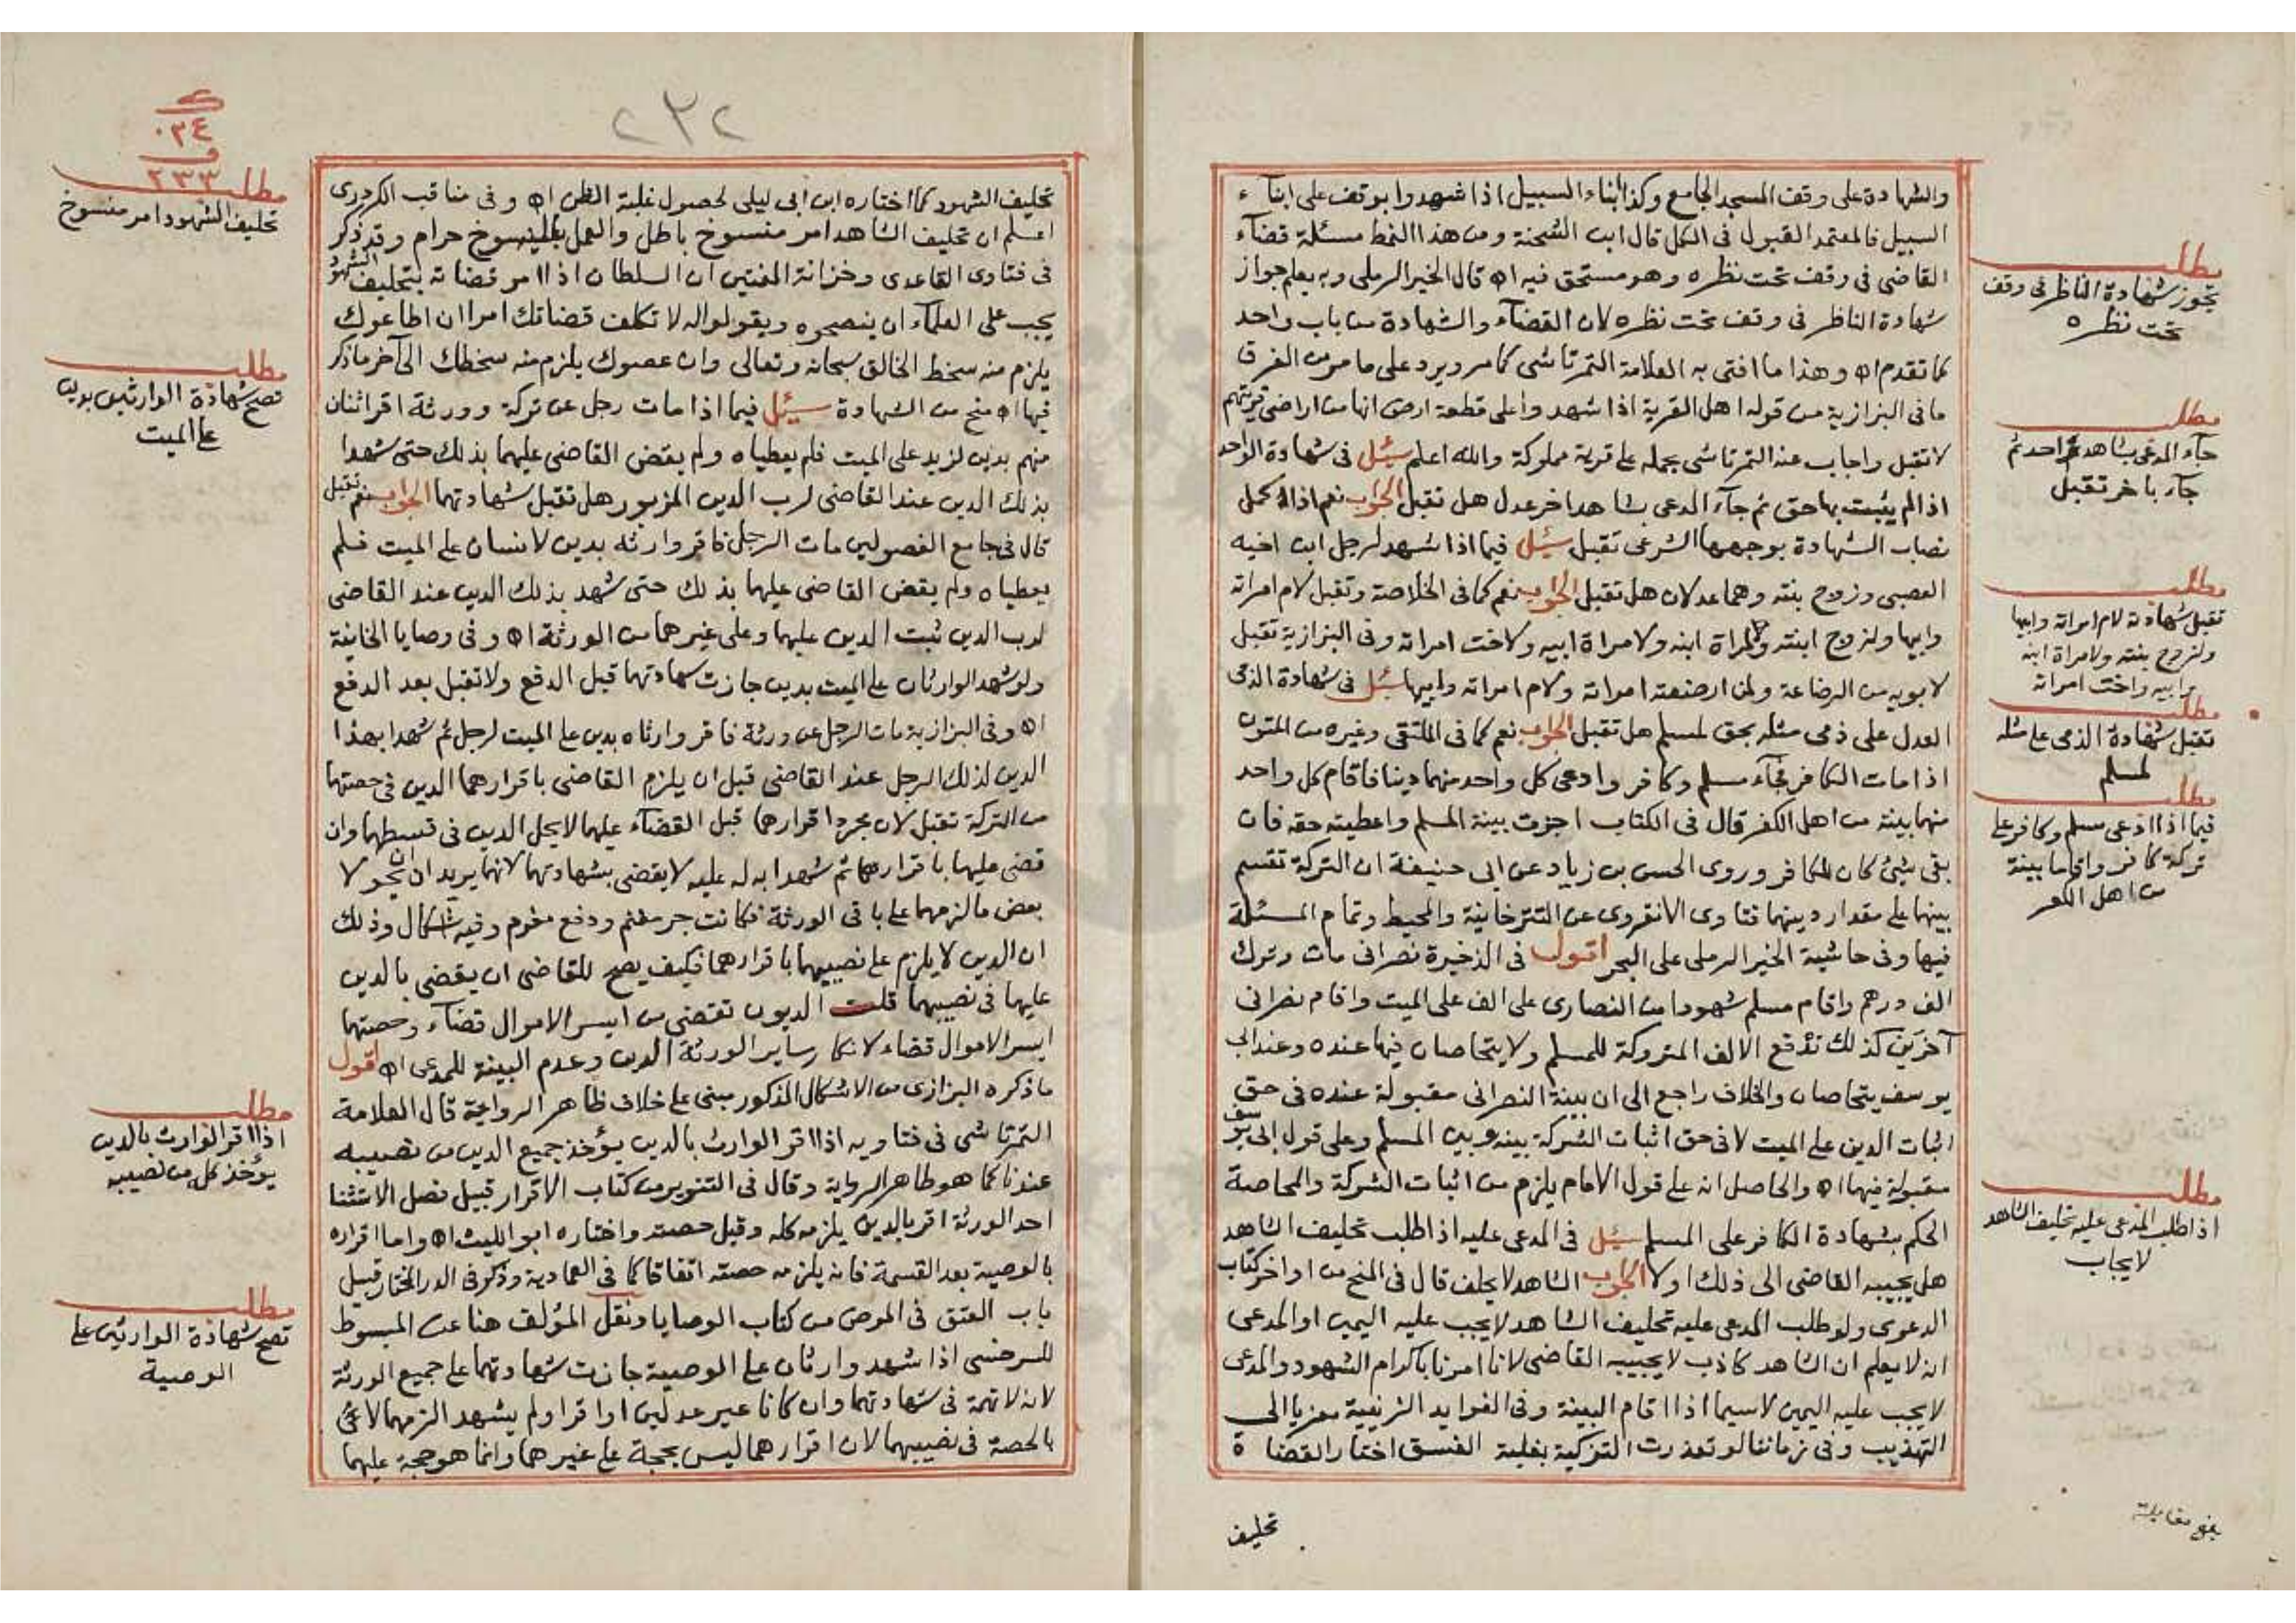 والشهادة على وقف المسجد الجامع وكذا أبناء السبيل اذا شهدوا بوقف على ابناء
السبيل فالمعتمد القبول فى الكل قال ابن الشحنة ومن هذا النمط مسئلة قضآء
القاضى فى وقف تحت نظره وهو مستحق فيه اه قال الخير الرملى وبه يعلم جواز
شهادة الناظر فى وقف تحت نظره لان القضآء والشهادة من باب واحد
كما تقدم اه وهذا ما افتى به العلامة التمرتاشى كما مر ويرد على ما مر من الفرق
ما فى البزازية من قوله اهل القرية اذا شهدوا على قطعة ارض انها من اراضى قريتهم
لا تقبل واجاب عنه التمرتاشى بحمله على قرية مملوكة والله اعلم سئل فى شهادة الواحد
اذا لم يثبت بها حق ثم جآء المدعى بشاهد اخر عدل هل تقبل الجواب نعم اذا كمل
نصاب الشهادة بوجهها الشرعى تقبل سئل فيما اذا شهد لرجل ابن اخيه
العصبى وزوج بنته وهما عدلان هل تقبل الجواب نعم كما فى الخلاصة وتقبل لام امراته
وابيها ولزوج ابنته ولامراة ابنه ولامراة ابيه ولاخت امراته وفى البزازية تقبل
لابويه من الرضاعة ولمن ارضعته امراته ولام امراته وابيها سئل فى شهادة الذمى
العدل على ذمى مثله بحق لمسلم هل تقبل الجواب نعم كما فى الملتقى وغيره من المتون
اذا مات الكافر فجآء مسلم وكافر وادعى كل واحد منهما دينا فاقام كل واحد
منهما بينة من اهل الكفر قال فى الكتاب اجزت بينة المسلم واعطيته حقه فان
بقى شيئ كان للكافر وروى الحسن بن زياد عن ابى حنيفة ان التركة تقسم
بينهما على مقدار دينهما فتاوى الانقروى عن التترخانية والمحيط وتمام المسئلة
فيها وفى حاشية الخير الرملى على البحر اقول فى الذخيرة نصرانى مات وترك
الف درهم واقام مسلم شهودا من النصارى على الف على الميت واقام نصرانى
آخرين كذلك تدفع الالف المتروكة للمسلم ولا يتحاصان فيها عنده وعند ابى
يوسف يتحاصان والخلاف راجع الى ان بينة النصرانى مقبولة عنده فى حق
اثبات الدين على الميت لا فى حق اثبات الشركة بينه وبين المسلم وعلى قول ابى يوسف
مقبولة فيهما اه والحاصل انه على قول الامام يلزم من اثبات الشركة والمحاصة
الحكم بشهادة الكافر على المسلم سئل فى المدعى عليه اذا طلب تحليف الشاهد
هل يجيبه القاضى الى ذلك او لا الجواب الشاهد لا يحلف قال فى المنح من اواخر كتاب
الدعوى ولو طلب المدعى عليه تحليف الشاهد لا يجب عليه اليمين او المدعى
انه لا يعلم ان الشاهد كاذب لا يجيبه القاضى لانا امرنا باكرام الشهود والمدعى
لا يجب عليه اليمين لاسيما اذا اقام البينة وفى الفوايد الزينية معزيا الى
التهذيب وفى زماننا لو تعذرت التزكية بغلبة الفسق اختار القضاة
تحليف
مطلب
تجوز شهادة الناظر فى وقف
تحت نظره
مطلب
جآء المدعى بشاهد واحد ثم
جآء باخر تقبل
مطلب
تقبل شهادته لام امراته وابيها
ولزوج بنته ولامراة ابنه
وابيه واخت امراته
مطلب
تقبل شهادة الذمى على مثله
لمسلم
مطلب
فيما اذا ادعى مسلم وكافر على
تركة كافر واقاما بينة
من اهل الكفر
مطلب
اذا طلب المدعى عليه تحليف الشاهد
لا يجاب
بلغ مقابلة
٢٣٢
تحليف الشهود كما اختاره ابن ابى ليلى لحصول غلبة الظن اه وفى مناقب الكردرى
اعلم ان تحليف الشاهد امر منسوخ باطل والعمل بالمنسوخ حرام وقد ذكر
فى فتاوى القاعدى وخزانة المفتين ان السلطان اذا امر قضاته بتحليف الشهود
يجب على العلمآء ان ينصحوه ويقولوا له لا تكلف قضاتك امرا ان اطاعوك
يلزم منه سخط الخالق سبحانه وتعالى وان عصوك يلزم منه سخطك الى آخر ما ذكر
فيها اه منح من الشهادة سئل فيما اذا مات رجل عن تركة وورثة اقر اثنان
منهم بدين لزيد على الميت فلم يعطياه ولم يقض القاضى عليهما بذلك حتى شهدا
بذلك الدين عند القاضى لرب الدين المزبور هل تقبل شهادتهما الجواب نعم تقبل
قال فى جامع الفصولين مات الرجل فاقر وارثه بدين لانسان على الميت فلم
يعطياه ولم يقض القاضى عليهما بذلك حتى شهد بذلك الدين عند القاضى
لرب الدين ثبت الدين عليهما وعلى غيرهما من الورثة اه وفى وصايا الخانية
ولو شهد الوارثان على الميت بدين جازت شهادتهما قبل الدفع ولا تقبل بعد الدفع
اه وفى البزازية مات الرجل عن ورثة فاقر وارثاه بدين على الميت لرجل ثم شهدا بهذا
الدين لذلك الرجل عند القاضى قبل ان يلزم القاضى باقرارهما الدين فى حصتهما
من التركة تقبل لان بمجرد اقرارهما قبل القضآء عليهما لا يحل الدين فى قسطهما وان
قضى عليهما باقرارهما ثم شهدا به له عليه لا يقضى بشهادتهما لانهما يريدان ان يحولا
بعض ما لزمهما على باقى الورثة فكانت جر مغنم ودفع مغرم وفيه اشكال وذلك
ان الدين لا يلزم على نصيبهما باقرارهما فكيف يصح للقاضى ان يقضى بالدين
عليهما فى نصيبهما قلت الديون تقتضى من ايسر الاموال قضآء وحصتهما
ايسر الاموال قضاء لانكار ساير الورثة الدين وعدم البينة للمدعى اه اقول
ما ذكره البزازى من الاشكال المذكور مبنى على خلاف ظاهر الرواية قال العلامة
التمرتاشى فى فتاويه اذا اقر الوارث بالدين يؤخذ جميع الدين من نصيبه
عندنا كما هو ظاهر الرواية وقال فى التنوير من كتاب الاقرار قبيل فصل الاستثنا
احد الورثة اقر بالدين يلزمه كله وقيل حصته واختاره ابو الليث اه واما اقراره
بالوصية بعد القسمة فانه يلزمه حصته اتفاقا كما فى العمادية وذكر فى الدر المختار قبيل
باب العتق فى المرض من كتاب الوصايا ونقل المؤلف هنا عن المبسوط
للسرخسى اذا شهد وارثان على الوصية جازت شهادتهما على جميع الورثة
لانه لا تهمة فى شهادتهما وان كانا غير عدلين او اقرا ولم يشهد الزمهما لا غير
بالحصة فى نصيبهما لان اقرارهما ليس بحجة على غيرهما وانما هو حجة عليهما
٠٣٤
٢٣٣
مطلب
تحليف الشهود امر منسوخ
مطلب
تصح شهادة الوارثين بدين
على الميت
مطلب
اذا اقر الوارث بالدين
يؤخذ كله من نصيبه
مطلب
تصح شهادة الوارثين على
الوصية